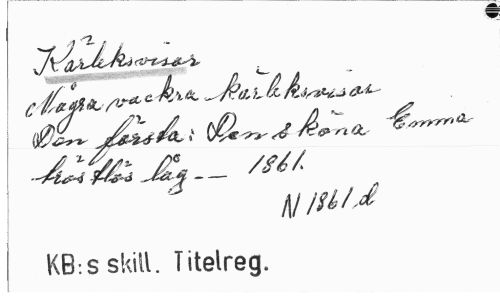 Kärleksvisor
Några vackra kärleksvisor
Den första: Den sköna Emma
tröstlös låg -- 1861.
N 1861.d
KB:s skill. Titelreg.